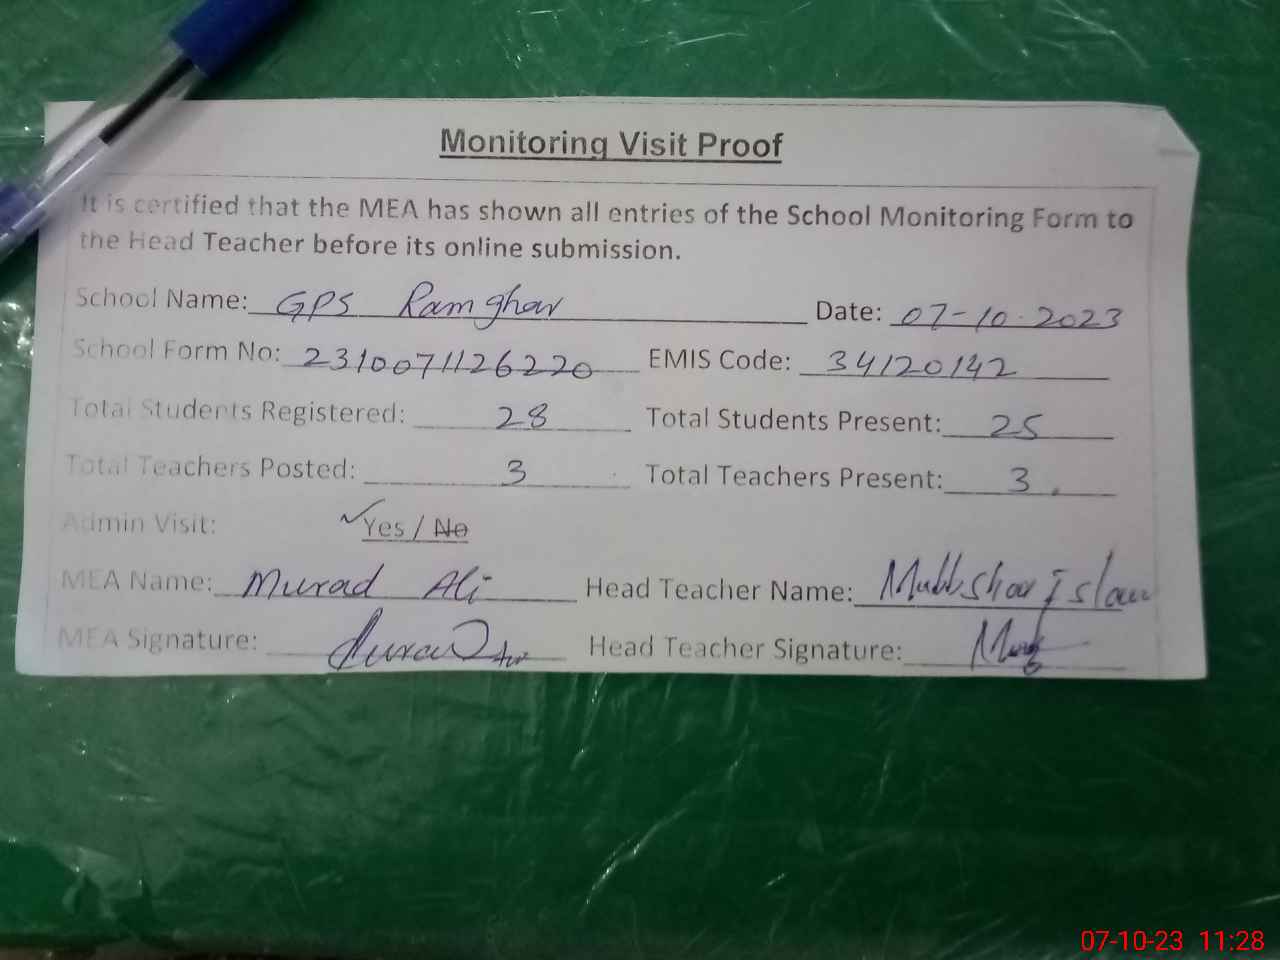 Monitoring Visit Proof
It is certified that the MEA has shown all entries of the School Monitoring Form to
the Head Teacher before its online submission.
School Name: GPS Ramghar Date: 07-10-2023
School Form No: 2310071126220 EMIS Code: 34120142
Total Students Registered: 28 Total Students Present: 25
Total Teachers Posted: 3 Total Teachers Present: 3
Admin Visit: ✓Yes / No
MEA Name: Murad Ali Head Teacher Name: Mubbshar Islam
MEA Signature: Head Teacher Signature:
07-10-23 11:28